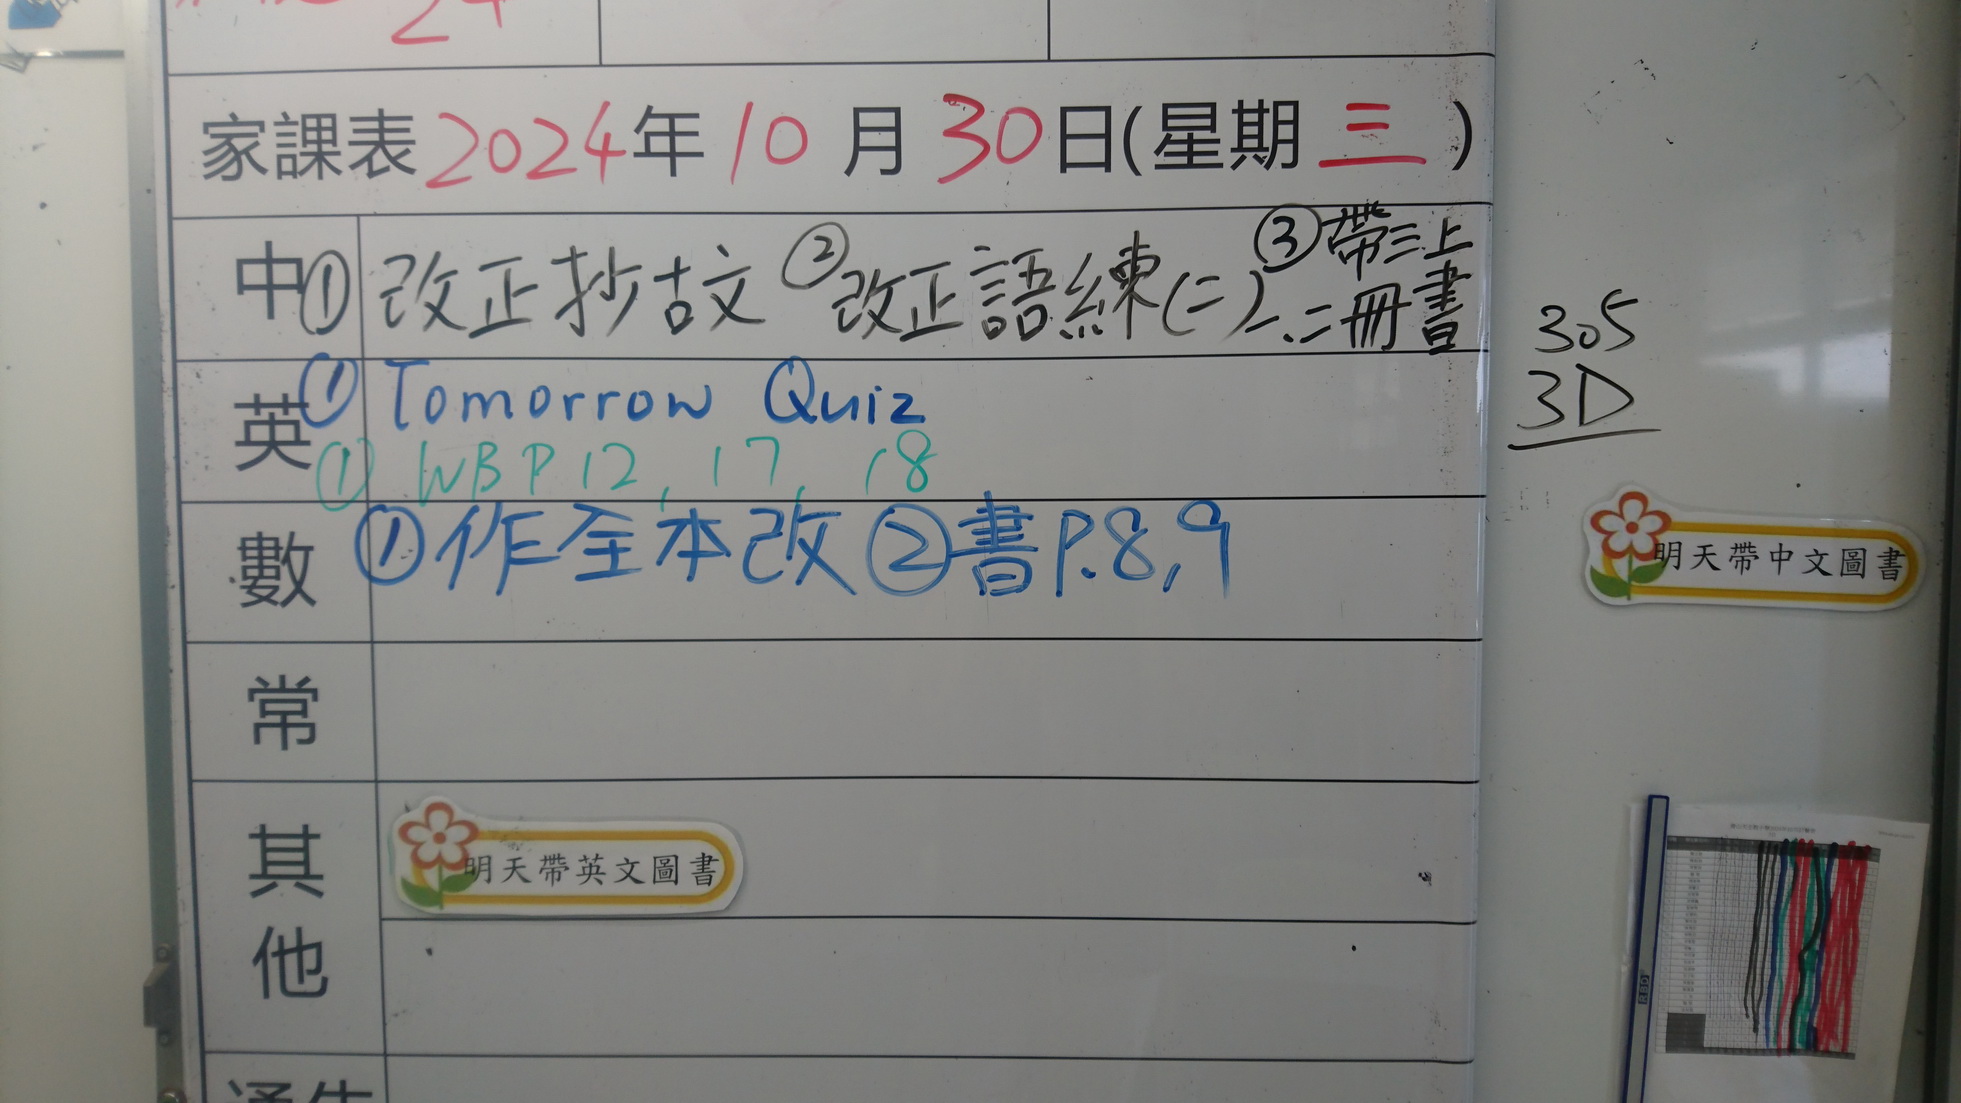 24
家課表 2024年 10 月 30日(星期 三 )
中 ① 改正抄古文 ② 改正語練(二) ③ 帶三上
一.二冊書
英 ① Tomorrow Quiz
① WBP 12, 17, 18
數 ① 作全本改 ② 書P.8,9
常
其他
明天帶英文圖書
通告
305
3D
明天帶中文圖書